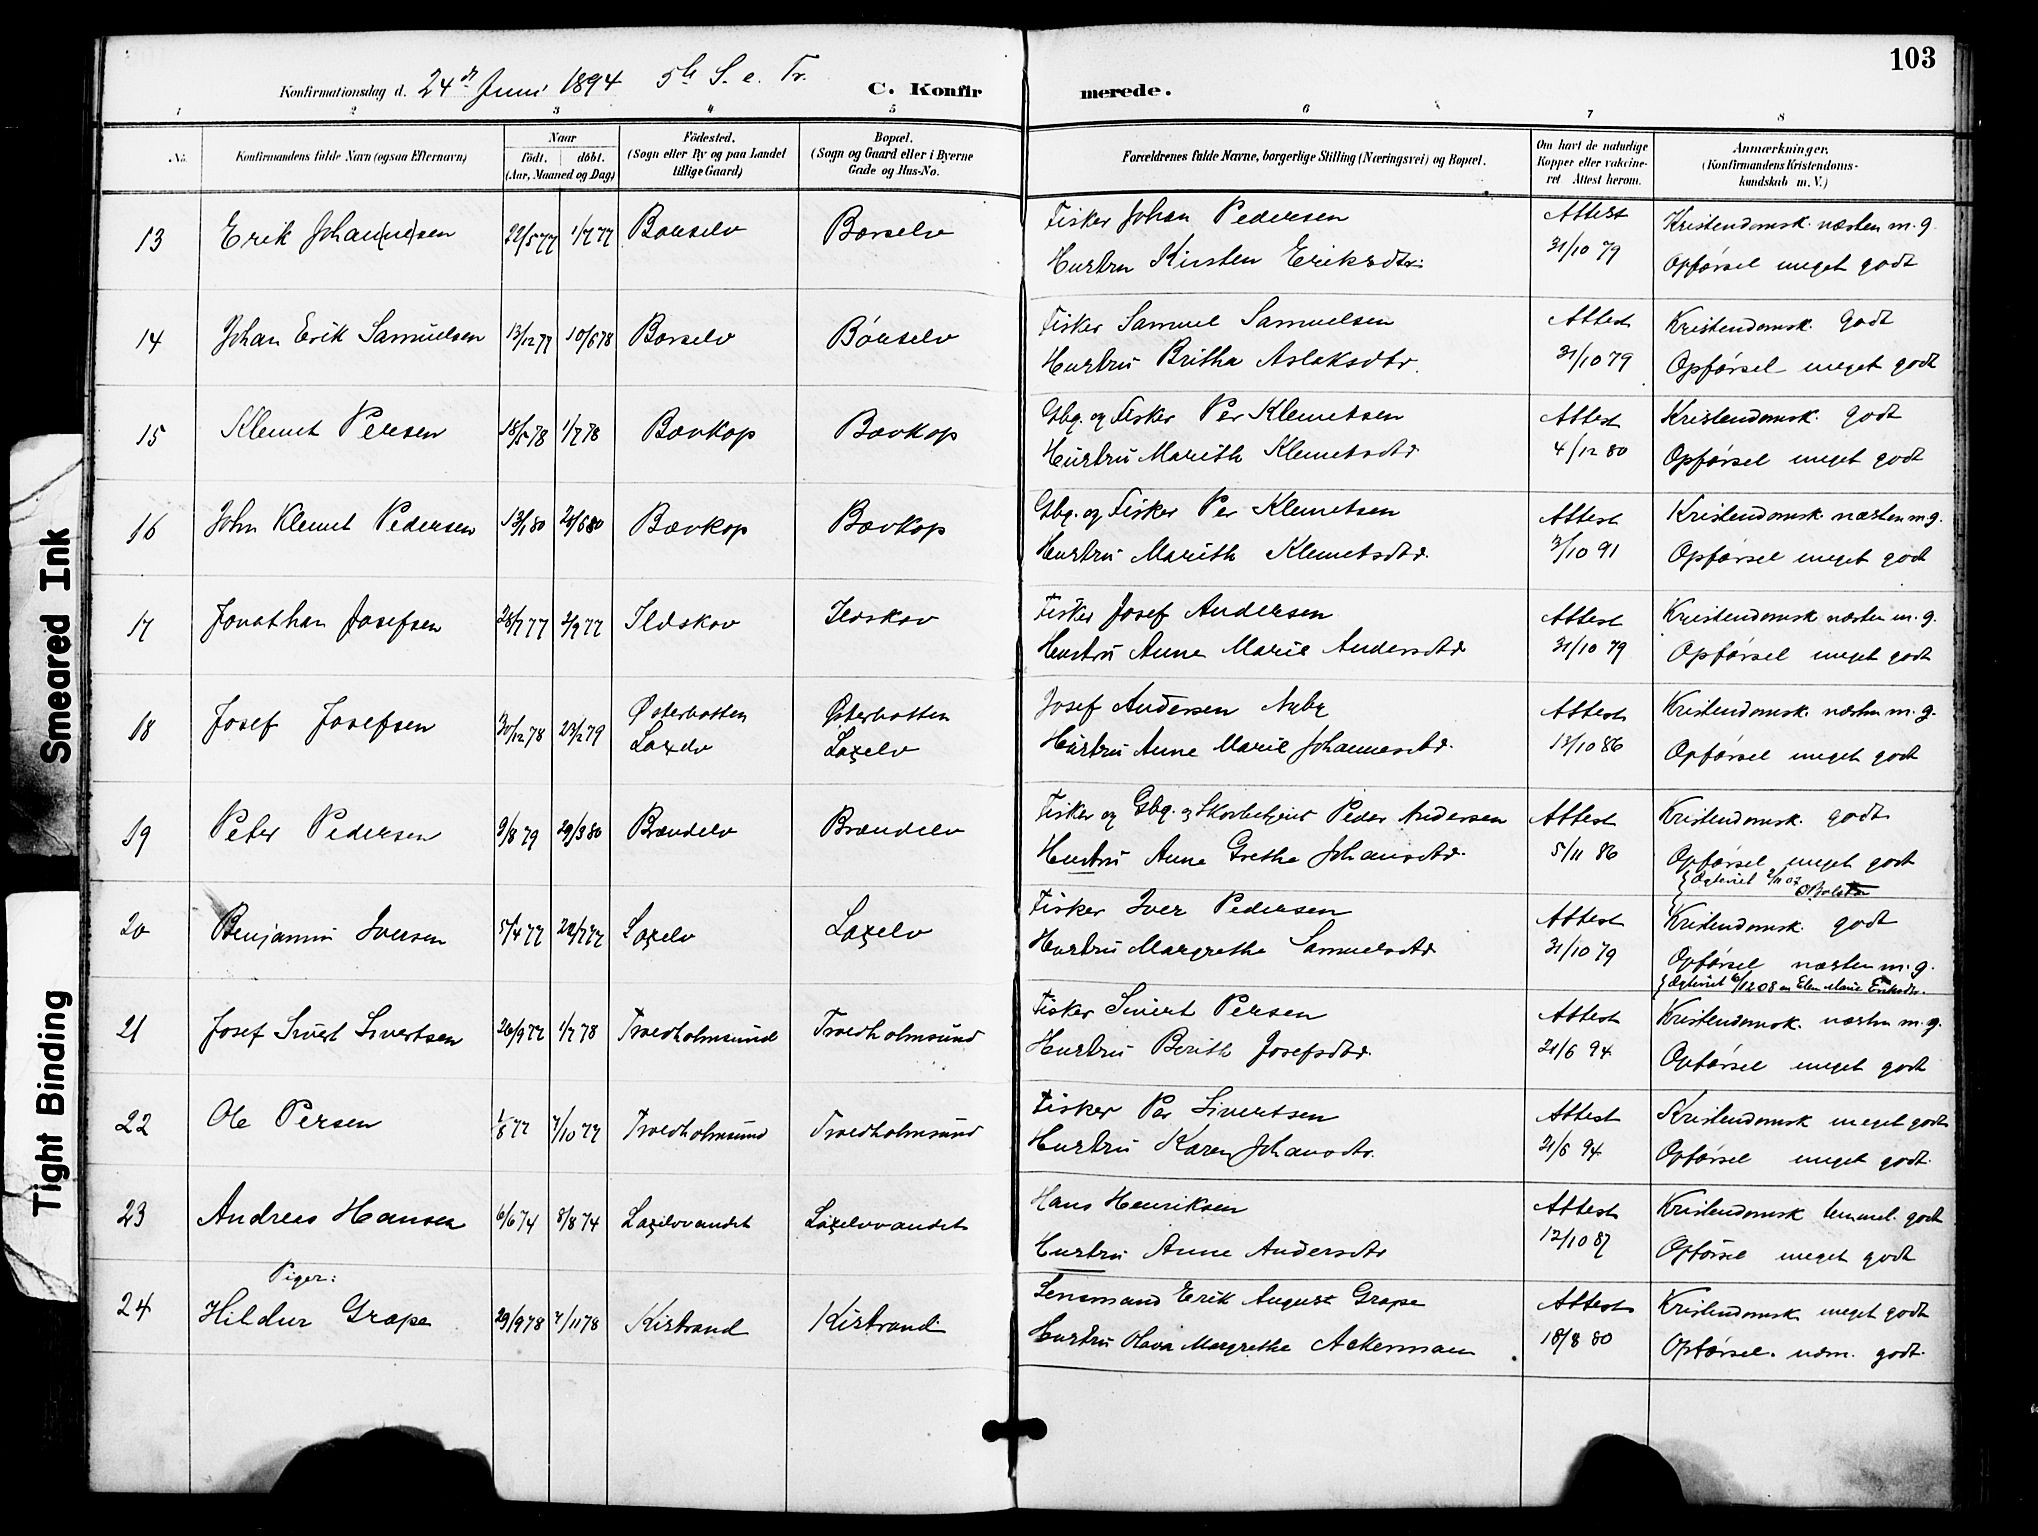 103
Konfirmationsdag d. 24de Juni 1894 5te S. e. Tr.
C. Konfirmerede.
1 2 3 4 5 6 7 8
No. Konfirmandens fulde Navn (ogsaa Efternavn) Naar født. døbt. (Aar, Maaned og Dag) Födested. (Sogn eller By og paa Landet tillige Gaard) Bopæl. (Sogn og Gaard eller i Byerne Gade og Hus-No. Forældrenes fulde Navne, borgerlige Stilling (Næringsvei) og Bopæl. Om havt de naturlige Kopper eller vakcineret. Attest herom. Anmærkninger. (Konfirmandens Kristendomskundskab m. V.)
13 Erik Johan(ne)sen 22/5 77 1/7 77 Børselv Børselv Fisker Johan Pedersen Attest Kristendomsk. næsten m. g.
Hustru Kirsten Eriksdtr. 31/10 79 Opførsel meget godt
14 Johan Erik Samuelsen 13/12 77 10/6 78 Børselv Børselv Fisker Samuel Samuelsen Attest Kristendomsk. godt
Hustru Britha Aslaksdtr. 31/10 79 Opførsel meget godt
15 Klemet Persen 18/5 78 1/7 78 Bævkop Bævkop Gbg. og Fisker Per Klemetsen Attest Kristendomsk. godt
Hustru Marith Klemetsdtr 4/12 80 Opførsel meget godt
16 John Klemet Pedersen 13/1 80 28/6 80 Bævkop Bævkop Gbg. og Fisker Per Klemetsen Attest Kristendomsk. næsten m. g.
Hustru Marith Klemetsdtr. 3/10 91 Opførsel meget godt
17 Jonathan Josefsen 28/7 77 2/9 77 Ildskov Ildskov Fisker Josef Andersen Attest Kristendomsk næsten m. g.
Hustru Anne Marie Andersdtr 31/10 79 Opførsel meget godt
18 Josef Josefsen 30/12 78 23/2 79 Østerbotten Laxelv Østerbotten Laxelv Josef Andersen Nybg Attest Kristendomsk. næsten m. g.
Hustru Anne Marie Johannesdtr. 13/10 86 Opførsel meget godt
19 Peter Pedersen 9/8 79 29/3 80 Brændelv Brændelv Fisker og Gbg. og Skovbetjent Peder Andersen Attest Kristendomsk. godt
Hustru Anne Grethe Johansdtr. 5/11 86 Opførsel meget godt
20 Benjamin Iversen 5/4 77 22/7 77 Laxelv Laxelv Fisker Iver Pedersen Attest Kristendomsk. godt
Hustru Margrethe Samuelsdtr 31/10 79 Opførsel næsten m. g.
21 Josef Sivert Sivertsen 26/9 77 1/7 78 Trædholmsund Trædholmsund Fisker Sivert Persen Attest Kristendomsk. næsten m. g.
Hustru Berith Josefsdtr. 21/6 94 Opførsel meget godt
22 Ole Persen 1/8 77 7/10 77 Trædholmsund Trædholmsund Fisker Per Sivertsen Attest Kristendomsk meget godt
Hustru Karen Johansdtr. 21/6 94 Opførsel meget godt.
23 Andreas Hansen 6/6 74 8/8 74 Laxelvvandet Laxelvvandet Hans Henriksen Attest Kristendomsk temmel. godt
Hustru Anne Andersdtr 12/10 87 Opførsel meget godt
Piger:
24 Hildur Grape 29/9 78 7/11 78 Kistrand Kistrand Lensmand Erik August Grape Attest Kristendomsk meget godt
Hustru Olava Margrethe Ackermann 18/8 80 Opførsel. udm. godt.
Smeared Ink
Tight Binding